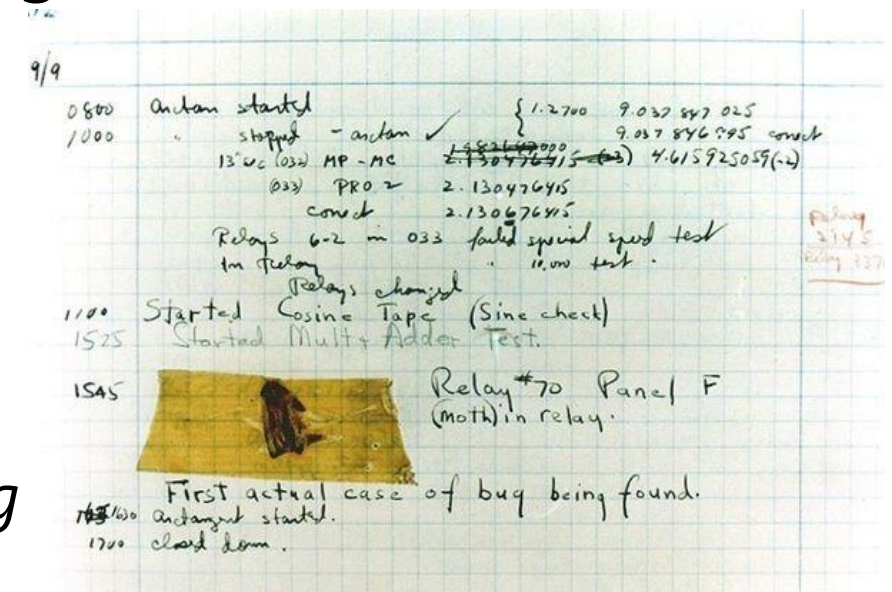 9/9
0800 antan started { 1.2700 9.037 847 025
1000 " stopped - antan ✓ 9.037 846 995 conect
13"uc (032) MP - MC 2.130476415 (-3) 4.615925059(-2)
(033) PRO 2 2.130476415
conect 2.130676415
Relays 6-2 in 033 failed special speed test
In Relay " 10,000 test .
Relay
2145
Relay 337
Relays changed
1100 Started Cosine Tape (Sine check)
1525 Started Mult + Adder Test.
1545 Relay #70 Panel F
(moth) in relay.
First actual case of bug being found.
1630 antangent started.
1700 closed down.
g
g